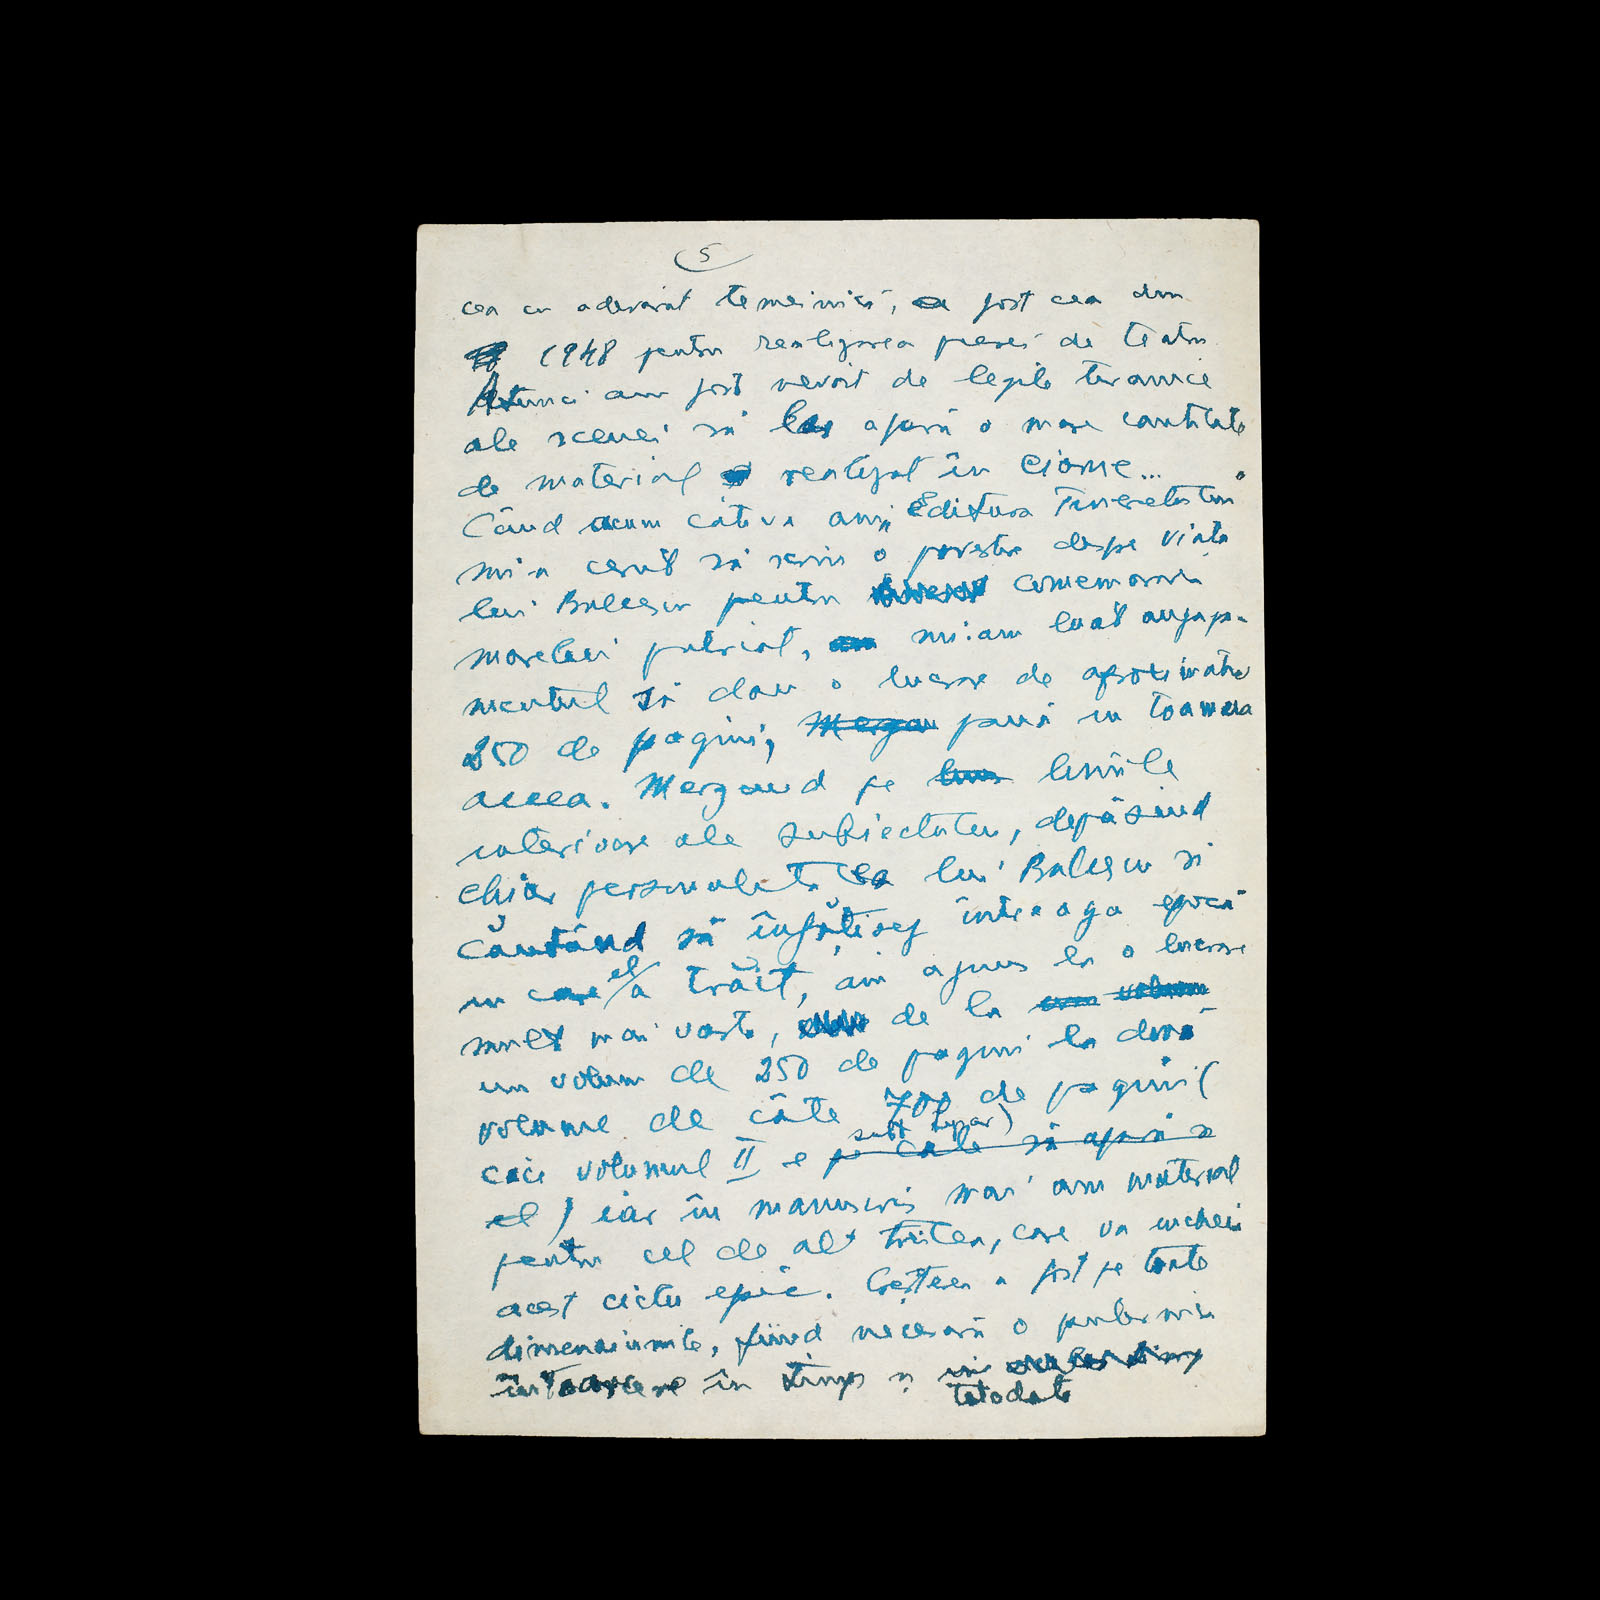 5
cea cu adevărat temeinică, a fost cea din
1948 pentru realizarea piesei de teatru
Atunci am fost nevoit de legile tiranice
ale scenei să las afară o mare cantitate
de material realizat în ciorne...
Când acum câteva ani, Editura Tineretului
mi-a cerut să scriu o povestire despe viața
lui Bălcescu pentru comemorarea
marelui patriot, mi-am luat angaja-
mentul să dau o lucrare de aproximativ
250 de pagini, până in toamna
aceea. Mergand pe liniile
interioare ale subiectului, depășind
chiar personalitatea lui Bălcescu si
căutând să înfățisez întreaga epocă
in care el a trăit, am ajuns la o lucrare
mult mai vastă, de la
un volum de 250 de pagini la două
volume de câte 700 de pagini (
căci volumul II e sub tipar)
iar în manuscris mai am material
pentru cel de al treilea, care va incheia
acest ciclu epic. Creșterea a fost pe toate
dimensiunile, fiind necesară o puternică
întoarcere în timp și
totodată